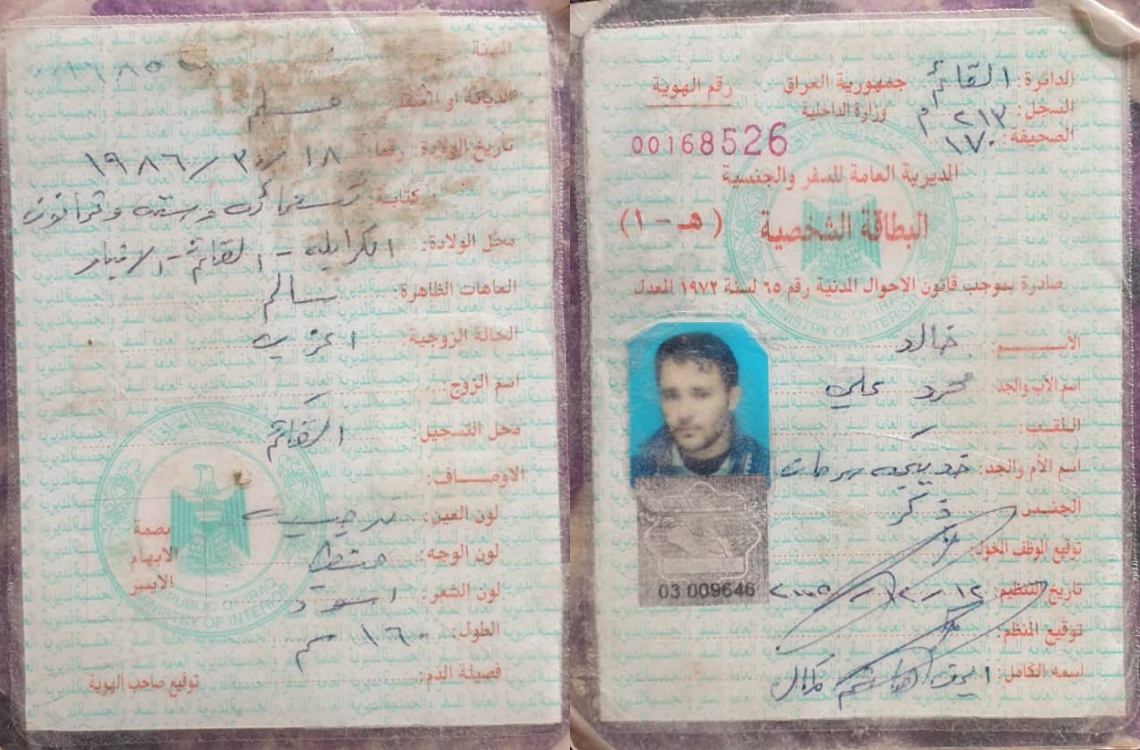 الدائرة: القائم
جمهورية العراق
رقم الهوية
السجل: ٢١٣ م
وزارة الداخلية
الصحيفة: ١٧٠
00168526
المديرية العامة للسفر والجنسية
البطاقة الشخصية (هـ - ١)
صادرة بموجب قانون الاحوال المدنية رقم ٦٥ لسنة ١٩٧٢ المعدل
REPUBLIC OF IRAQ
MINISTRY OF INTERIOR
الأســـم: خالد
اسم الأب والجد: علي
اللقب:
اسم الأم والجد: خديجه
الجنس: ذكر
توقيع الموظف المخول:
03 009646
تاريخ التنظيم:
توقيع المنظم:
اسمه الكامل:
المهنة:
الديانة او المذهب: مسلم
تاريخ الولادة: رقما: ١٨ / ٣ / ١٩٨٦
كتابة:
محل الولادة: الكرابله - القائم - الانبار
العاهات الظاهرة: سالم
الحالة الزوجية: اعزب
اسم الزوج:
محل التسجيل: القائم
الاوصــاف:
لون العين:
لون الوجه: حنطي
لون الشعر: اسود
الطول: ١٦٠ سم
فصيلة الدم:
بصمة
الابهام
الايسر
REPUBLIC OF IRAQ
MINISTRY OF INTERIOR
توقيع صاحب الهوية